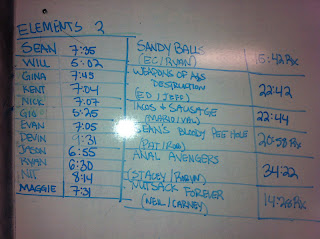 ELEMENTS 2
SEAN 7:35
WILL 5:02
GINA 7:45
KENT 7:04
NICK 7:07
GIO 5:25
EVAN 7:05
DEVIN 9:31
JASON 6:55
RYAN 6:30
8:14
MAGGIE 7:31
SANDY BALLS
(EC/RYAN) 15:42 Rx
WEAPONS OF ASS
DESTRUCTION
(ED/JEFF) 22:42
TACOS + SAUSAGE
22:44
SEAN'S BLOODY PEE HOLE
(PAT/ROB) 20:58 Rx
ANAL AVENGERS
(STACEY/ROBYN) 34:22
NUTSACK FOREVER
(NEIL/CARNEY) 14:26 Rx